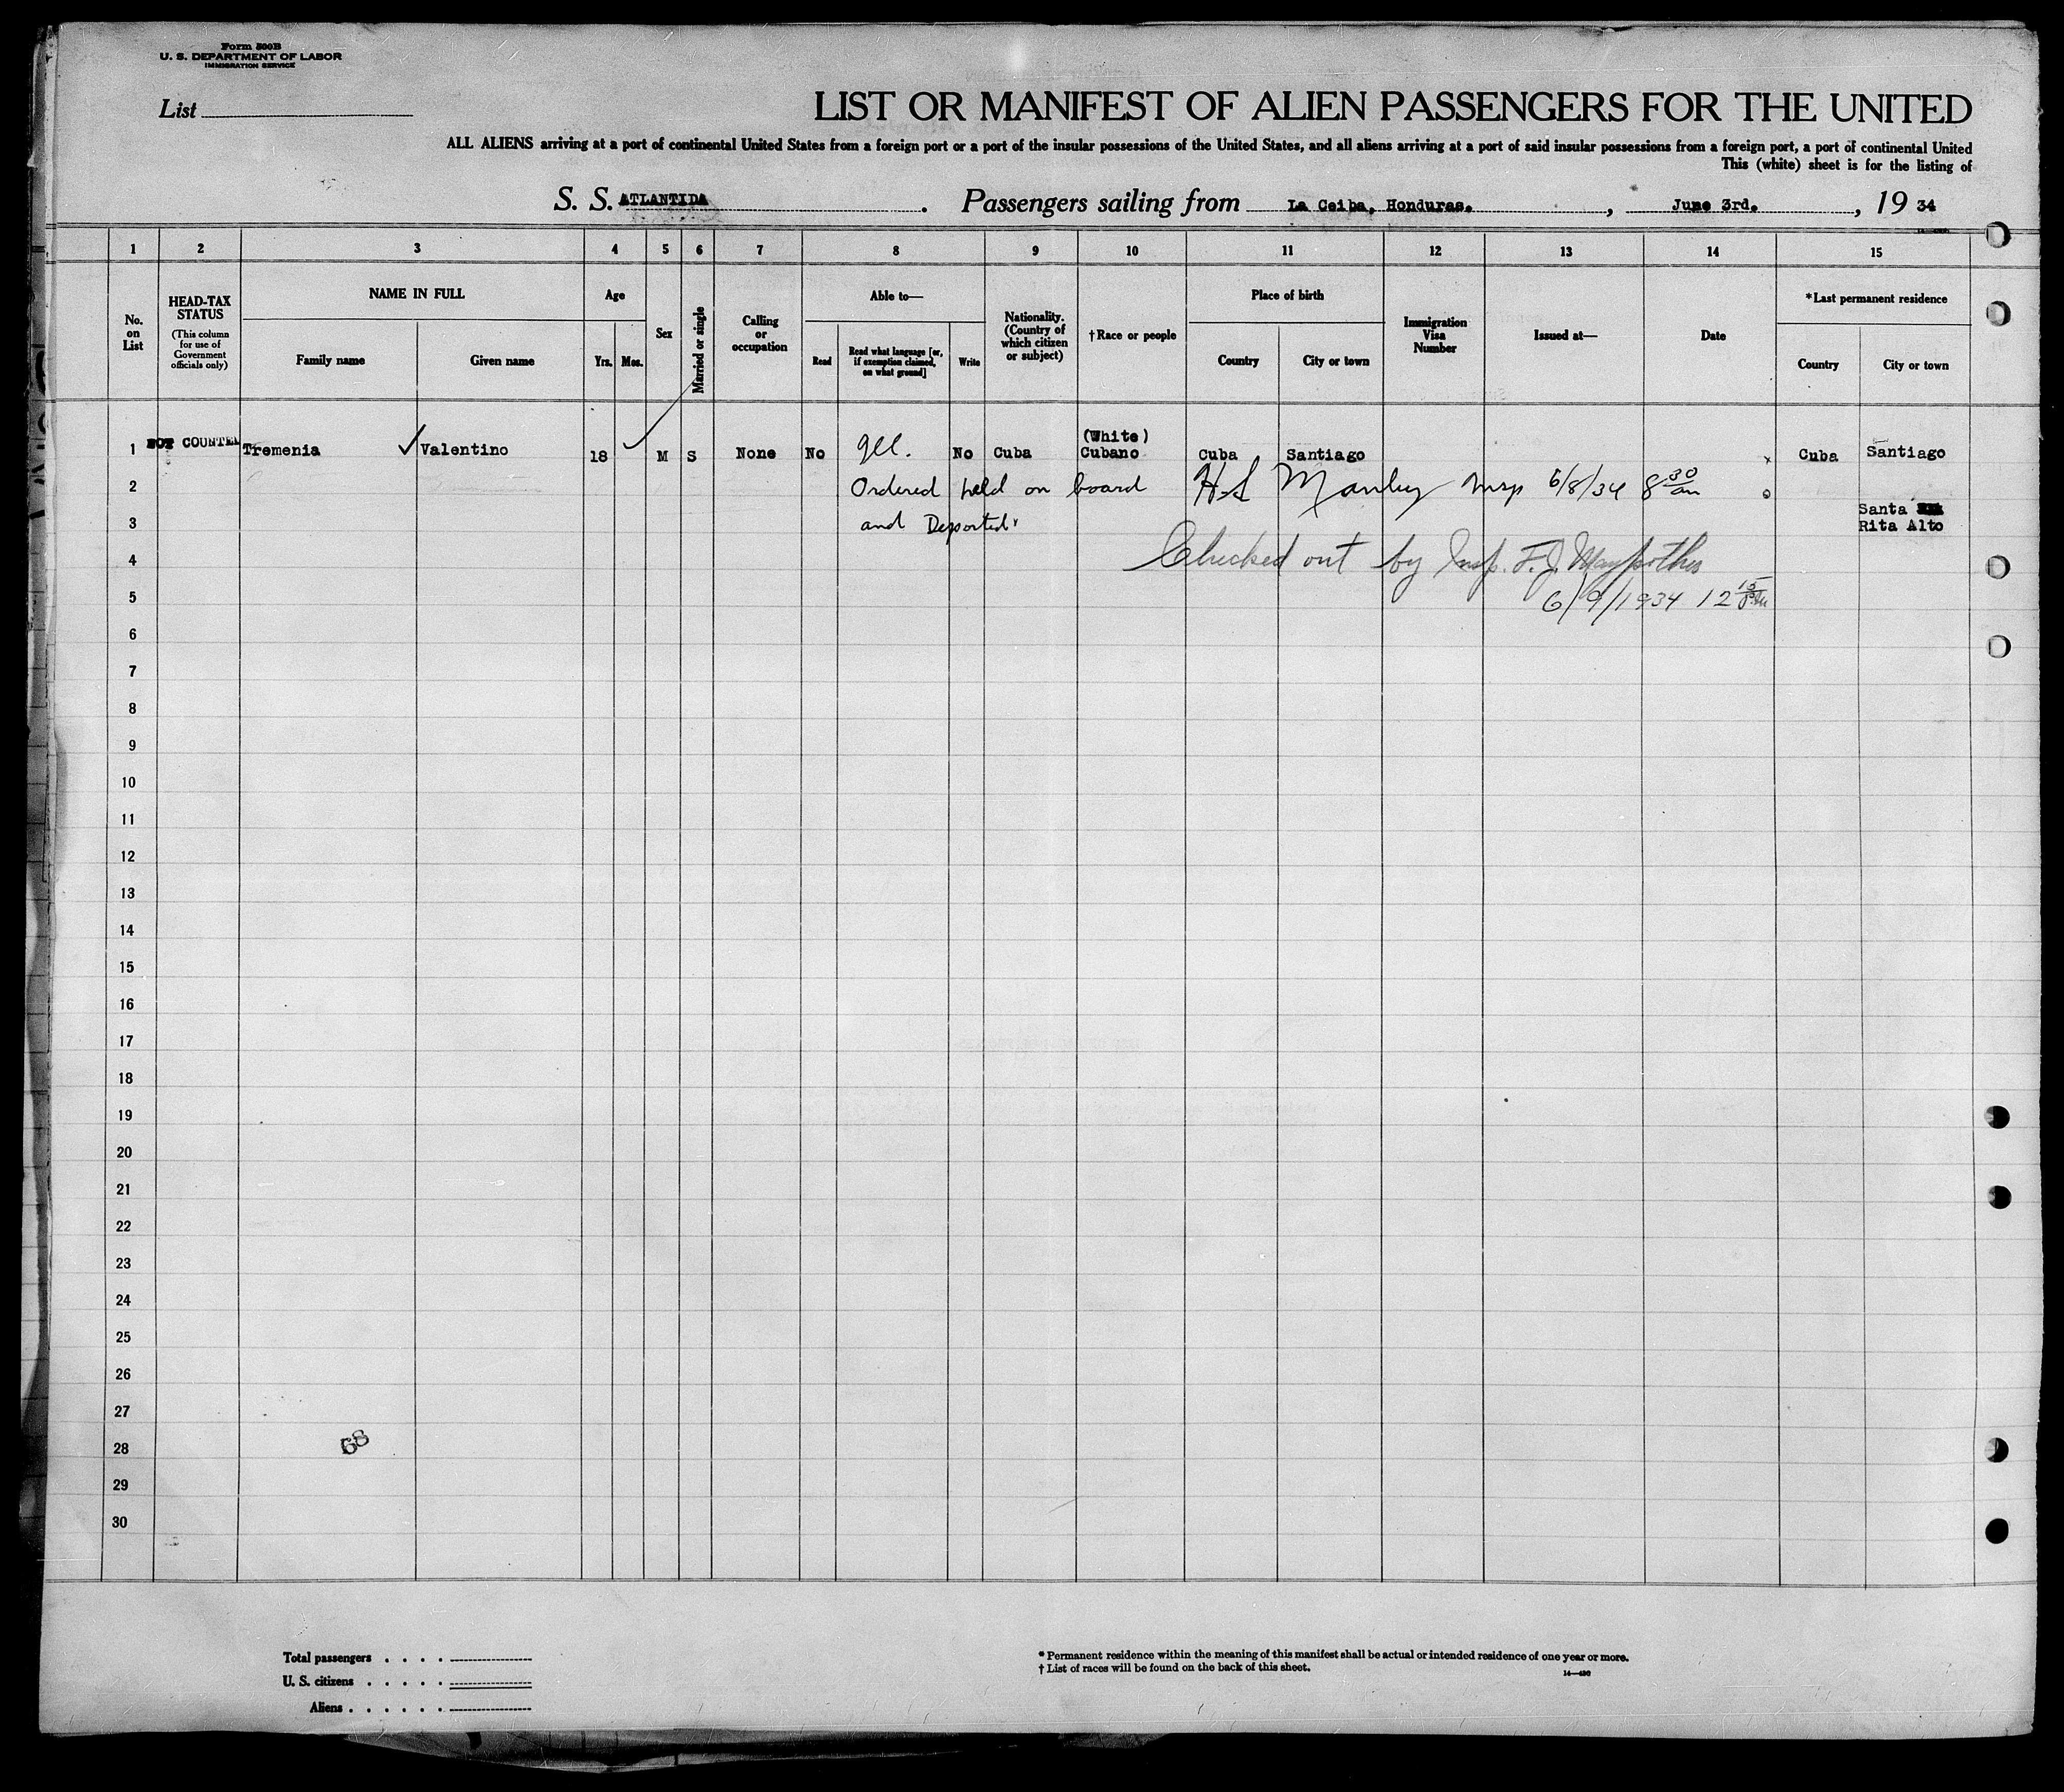 Form 500B
U. S. DEPARTMENT OF LABOR
IMMIGRATION SERVICE
List
LIST OR MANIFEST OF ALIEN PASSENGERS FOR THE UNITED
ALL ALIENS arriving at a port of continental United States from a foreign port or a port of the insular possessions of the United States, and all aliens arriving at a port of said insular possessions from a foreign port, a port of continental United
This (white) sheet is for the listing of
S. S. ATLANTIDA . Passengers sailing from La Ceiba, Honduras. , June 3rd. , 19 34
1 2 3 4 5 6 7 8 9 10 11 12 13 14 15
No. on List
HEAD-TAX STATUS
(This column for use of Government officials only)
NAME IN FULL
Family name
Given name
Age
Yrs.
Mos.
Sex
Married or single
Calling or occupation
Able to—
Read
Read what language [or, if exemption claimed, on what ground]
Write
Nationality. (Country of which citizen or subject)
†Race or people
Place of birth
Country
City or town
Immigration Visa Number
Issued at—
Date
*Last permanent residence
Country
City or town
1 NOT COUNTED Tremenia ✓ Valentino 18 M S None No No Cuba (White) Cubano Cuba Santiago Cuba Santiago
2 Ordered held on board H S Manley Insp 6/8/34 8 30 am
3 and Deported
Santa
Rita Alto
4 Checked out by Insp. F. J.
5 6/9/1934 12 15
6
7
8
9
10
11
12
13
14
15
16
17
18
19
20
21
22
23
24
25
26
27
28 68
29
30
Total passengers . . . .
U. S. citizens . . . . .
Aliens . . . . . .
* Permanent residence within the meaning of this manifest shall be actual or intended residence of one year or more.
† List of races will be found on the back of this sheet.